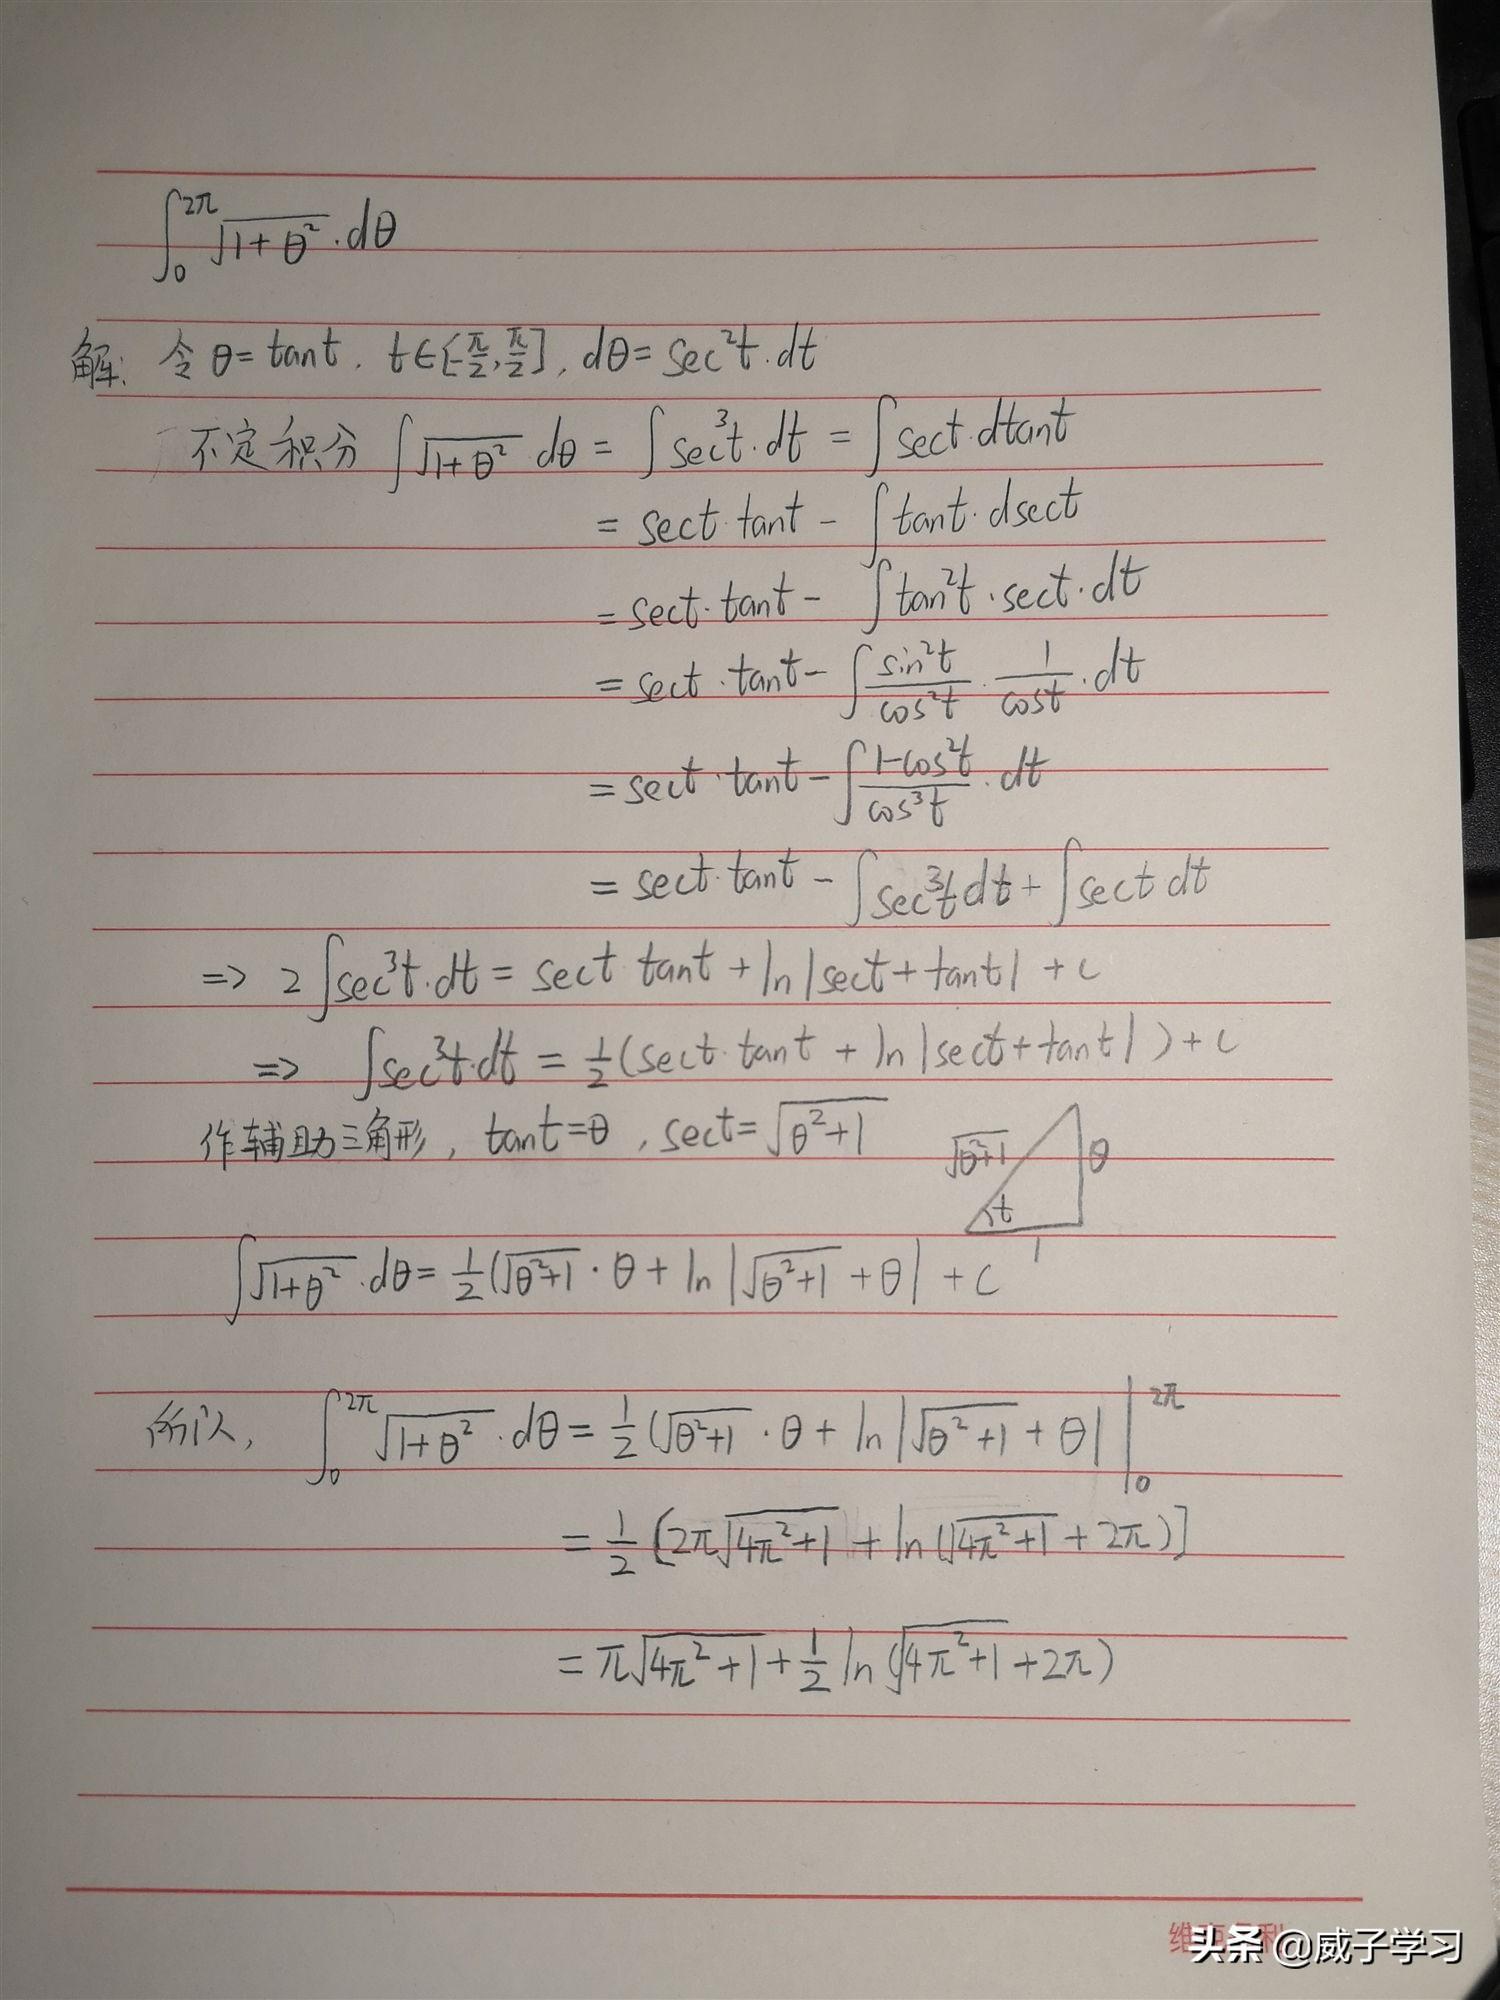 ∫₀^{2π} √(1+θ²)·dθ
解: 令 θ=tant, t∈[-π/2, π/2], dθ=sec²t·dt
不定积分 ∫√(1+θ²) dθ = ∫sec³t·dt = ∫sect·dtant
= sect·tant - ∫tant·dsect
= sect·tant - ∫tan²t·sect·dt
= sect·tant - ∫(sin²t/cos²t)·(1/cost)·dt
= sect·tant - ∫((1-cos²t)/cos³t)·dt
= sect·tant - ∫sec³t dt + ∫sect dt
=> 2∫sec³t·dt = sect tant + ln|sect+tant| + c
=> ∫sec³t·dt = ½(sect·tant + ln|sect+tant|) + c
作辅助三角形, tant=θ, sect=√(θ²+1)
√(θ²+1) θ
t
1
∫√(1+θ²)·dθ = ½(√(θ²+1)·θ + ln|√(θ²+1)+θ| + c
所以, ∫₀^{2π} √(1+θ²)·dθ = ½(√(θ²+1)·θ + ln|√(θ²+1)+θ| |₀^{2π}
= ½[2π√(4π²+1) + ln(√(4π²+1)+2π)]
= π√(4π²+1) + ½ln(√(4π²+1)+2π)
头条 @威子学习